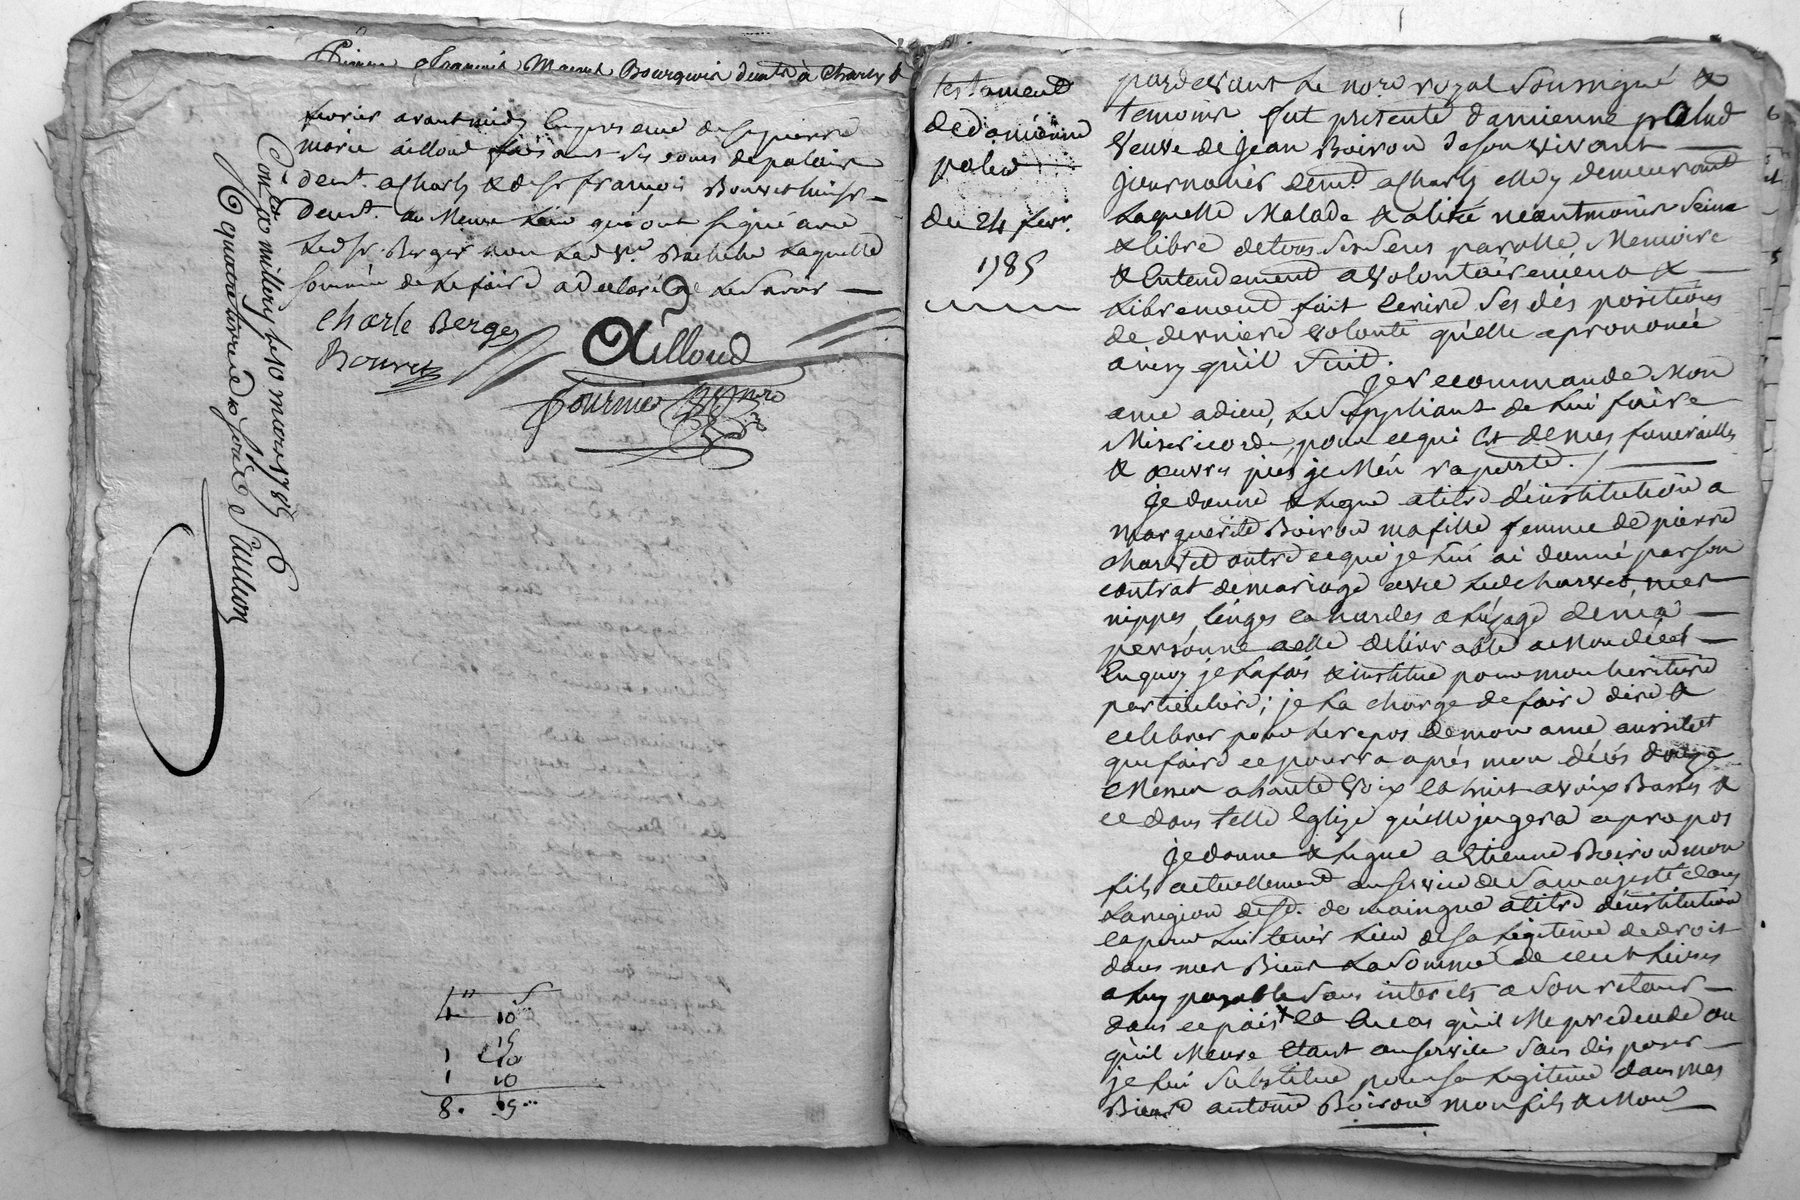 Bourguois demt à Charly &
fevrier avant midy en presence de sr pierre
marie ailloud faisant ses cours de palais
demt. a Charly & de sr françois Bouvet huisr
demt. au Meme Lieu qui ont signé avec
Led. sr. Berger non Lad. ve. Laquelle
sommée de Le faire a declaré ne Le savoir
Charle Berger
Bouvet
Ailloud
Fournier nore
Conlé a millery le 10 mars 1785
R quatre livres 10 s
Saulion
4" 5
10
15
1 10
1 10
8. 15
testament
de damienne
palud
du 24 fevr.
1785
pardevant Le nore royal soussigné &
temoins fut presente damienne palud
veuve de jean Boiron de son vivant
journalier demt. a Charly elle y demeurant
Laquelle Malade & alitée neantmoins seine
& libre de tous ses sens parolle Memoire
& Entendement a volontairement &
Librement fait Ecrire ses dispositions
de derniere volonté qu'elle a prononcé
ainsy qu'il suit.
je recommande Mon
ame a dieu, Le suppliant de Lui faire
Misericorde, pour ce qui Est de mes funerailles
& œuvres pies je M'en raporte./
je donne & Legue a titre d'institution a
marguerite Boiron ma fille femme de pierre
charvet outre ce que je Lui ai donné par son
contrat de mariage avec Led. charvet mes
nippes, linges et hardes a L'uzage de ma
personne a elle delivrable a Mon décès
En quoy je La fais & institue pour mon heritiere
particuliere; je La charge de faire dire &
celebrer pour Le repos de mon ame aussitot
que faire ce pourra après mon décès douze
Messes a haute voix et huit a voix Basses &
ce dans telle Eglize qu'elle jugera a propos
je donne & Legue a Etienne Boiron mon
fils actuellement au service de Sa majesté dans
La region de st. domaingue a titre d'institution
et pour Lui tenir Lieu de sa Legitime de droit
dans mes Biens La somme de cent Livres
a Luy payable sans interets a son retour
dans ce païs & et En cas qu'il Me predecede ou
qu'il Meure Etant au service sans disposer
je Lui substitue pour sa Legitime dans mes
Biens antoine Boiron mon fils & Mon